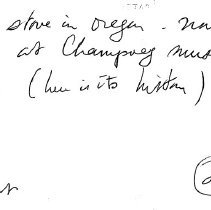 stove in oregon. now
at Champoeg mus
(here is its history)